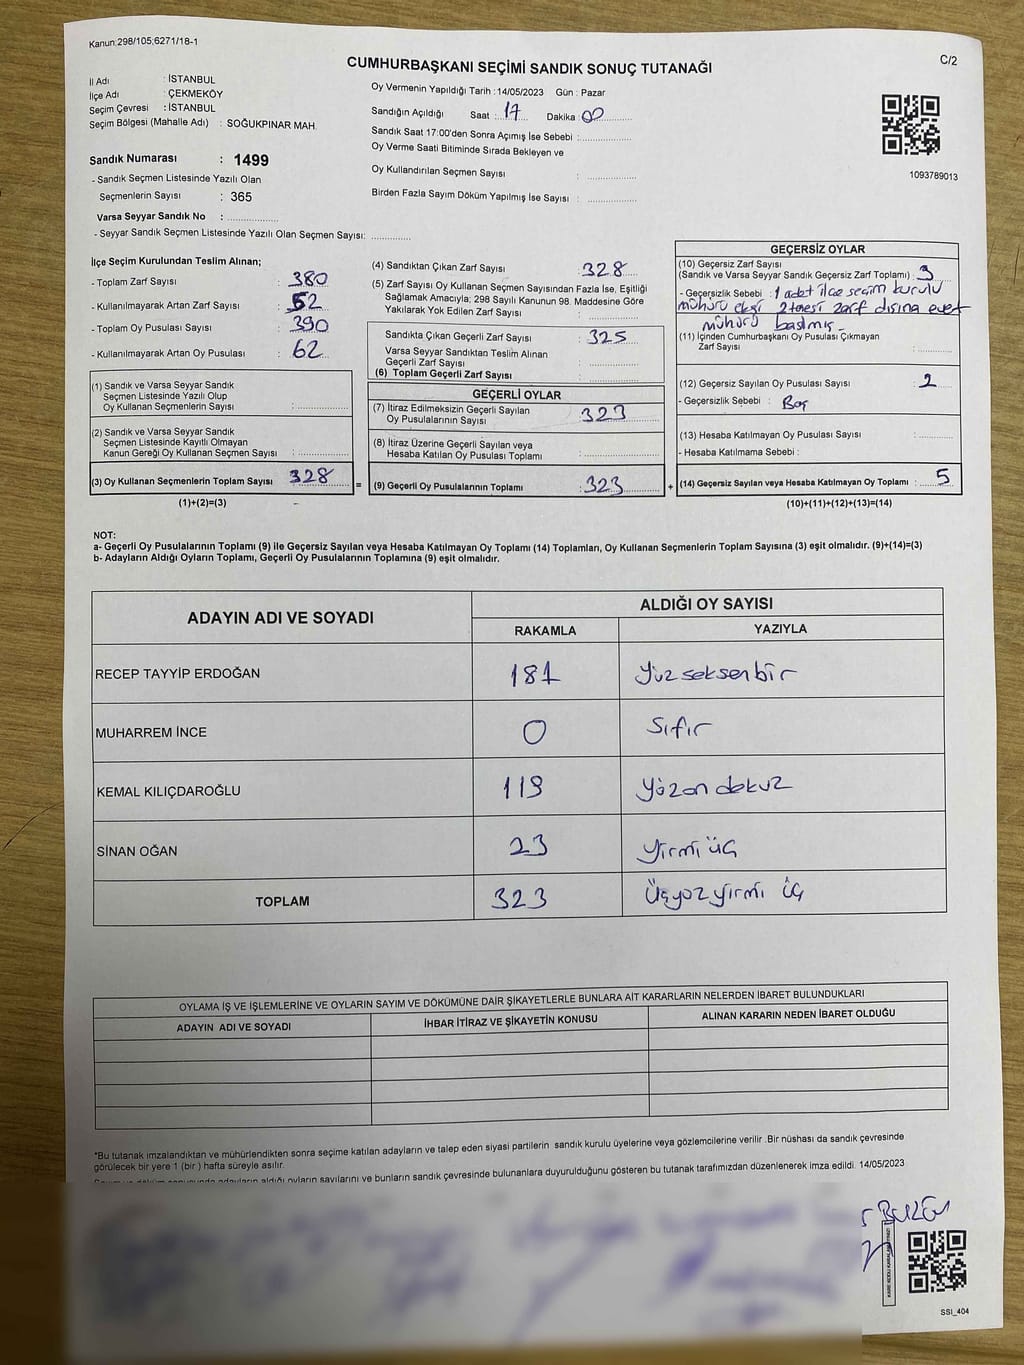 Kanun:298/105;6271/18-1
C/2
CUMHURBAŞKANI SEÇİMİ SANDIK SONUÇ TUTANAĞI
İl Adı : İSTANBUL
İlçe Adı : ÇEKMEKÖY
Seçim Çevresi : İSTANBUL
Seçim Bölgesi (Mahalle Adı) : SOĞUKPINAR MAH.
Sandık Numarası : 1499
- Sandık Seçmen Listesinde Yazılı Olan
Seçmenlerin Sayısı : 365
Varsa Seyyar Sandık No :
- Seyyar Sandık Seçmen Listesinde Yazılı Olan Seçmen Sayısı:
Oy Vermenin Yapıldığı Tarih :14/05/2023 Gün : Pazar
Sandığın Açıldığı Saat : 17 Dakika : 00
Sandık Saat 17:00'den Sonra Açımış İse Sebebi :
Oy Verme Saati Bitiminde Sırada Bekleyen ve
Oy Kullandırılan Seçmen Sayısı :
Birden Fazla Sayım Döküm Yapılmış İse Sayısı :
1093789013
İlçe Seçim Kurulundan Teslim Alınan;
- Toplam Zarf Sayısı : 380
- Kullanılmayarak Artan Zarf Sayısı : 52
- Toplam Oy Pusulası Sayısı : 390
- Kullanılmayarak Artan Oy Pusulası : 62
(1) Sandık ve Varsa Seyyar Sandık
Seçmen Listesinde Yazılı Olup
Oy Kullanan Seçmenlerin Sayısı :
(2) Sandık ve Varsa Seyyar Sandık
Seçmen Listesinde Kayıtlı Olmayan
Kanun Gereği Oy Kullanan Seçmen Sayısı :
(3) Oy Kullanan Seçmenlerin Toplam Sayısı 328 =
(1)+(2)=(3)
(4) Sandıktan Çıkan Zarf Sayısı : 328
(5) Zarf Sayısı Oy Kullanan Seçmen Sayısından Fazla İse, Eşitliği
Sağlamak Amacıyla; 298 Sayılı Kanunun 98. Maddesine Göre
Yakılarak Yok Edilen Zarf Sayısı :
Sandıkta Çıkan Geçerli Zarf Sayısı : 325
Varsa Seyyar Sandıktan Teslim Alınan
Geçerli Zarf Sayısı :
(6) Toplam Geçerli Zarf Sayısı :
GEÇERLİ OYLAR
(7) İtiraz Edilmeksizin Geçerli Sayılan
Oy Pusulalarının Sayısı : 323
(8) İtiraz Üzerine Geçerli Sayılan veya
Hesaba Katılan Oy Pusulası Toplamı :
(9) Geçerli Oy Pusulalarının Toplamı : 323 +
GEÇERSİZ OYLAR
(10) Geçersiz Zarf Sayısı
(Sandık ve Varsa Seyyar Sandık Geçersiz Zarf Toplamı) : 3
- Geçersizlik Sebebi : 1 adet ilçe seçim kurulu
mühürü 2 tanesi zarf dışına evet
mühürü basılmış
(11) İçinden Cumhurbaşkanı Oy Pusulası Çıkmayan
Zarf Sayısı :
(12) Geçersiz Sayılan Oy Pusulası Sayısı : 2
- Geçersizlik Sebebi : Boş
(13) Hesaba Katılmayan Oy Pusulası Sayısı :
- Hesaba Katılmama Sebebi :
(14) Geçersiz Sayılan veya Hesaba Katılmayan Oy Toplamı : 5
(10)+(11)+(12)+(13)=(14)
NOT:
a- Geçerli Oy Pusulalarının Toplamı (9) ile Geçersiz Sayılan veya Hesaba Katılmayan Oy Toplamı (14) Toplamları, Oy Kullanan Seçmenlerin Toplam Sayısına (3) eşit olmalıdır. (9)+(14)=(3)
b- Adayların Aldığı Oyların Toplamı, Geçerli Oy Pusulalarının Toplamına (9) eşit olmalıdır.
ADAYIN ADI VE SOYADI ALDIĞI OY SAYISI
RAKAMLA YAZIYLA
RECEP TAYYİP ERDOĞAN 181 Yüz seksen bir
MUHARREM İNCE 0 Sıfır
KEMAL KILIÇDAROĞLU 119 Yüzon dokuz
SİNAN OĞAN 23 Yirmi üç
TOPLAM 323 Üçyüzyirmi üç
OYLAMA İŞ VE İŞLEMLERİNE VE OYLARIN SAYIM VE DÖKÜMÜNE DAİR ŞİKAYETLERLE BUNLARA AİT KARARLARIN NELERDEN İBARET BULUNDUKLARI
ADAYIN ADI VE SOYADI İHBAR İTİRAZ VE ŞİKAYETİN KONUSU ALINAN KARARIN NEDEN İBARET OLDUĞU
"Bu tutanak imzalandıktan ve mühürlendikten sonra seçime katılan adayların ve talep eden siyasi partilerin sandık kurulu üyelerine veya gözlemcilerine verilir .Bir nüshası da sandık çevresinde
görülecek bir yere 1 (bir ) hafta süreyle asılır.
adayların aldığı oyların sayılarını ve bunların sandık çevresinde bulunanlara duyurulduğunu gösteren bu tutanak tarafımızdan düzenlenerek imza edildi. 14/05/2023
SSI_404